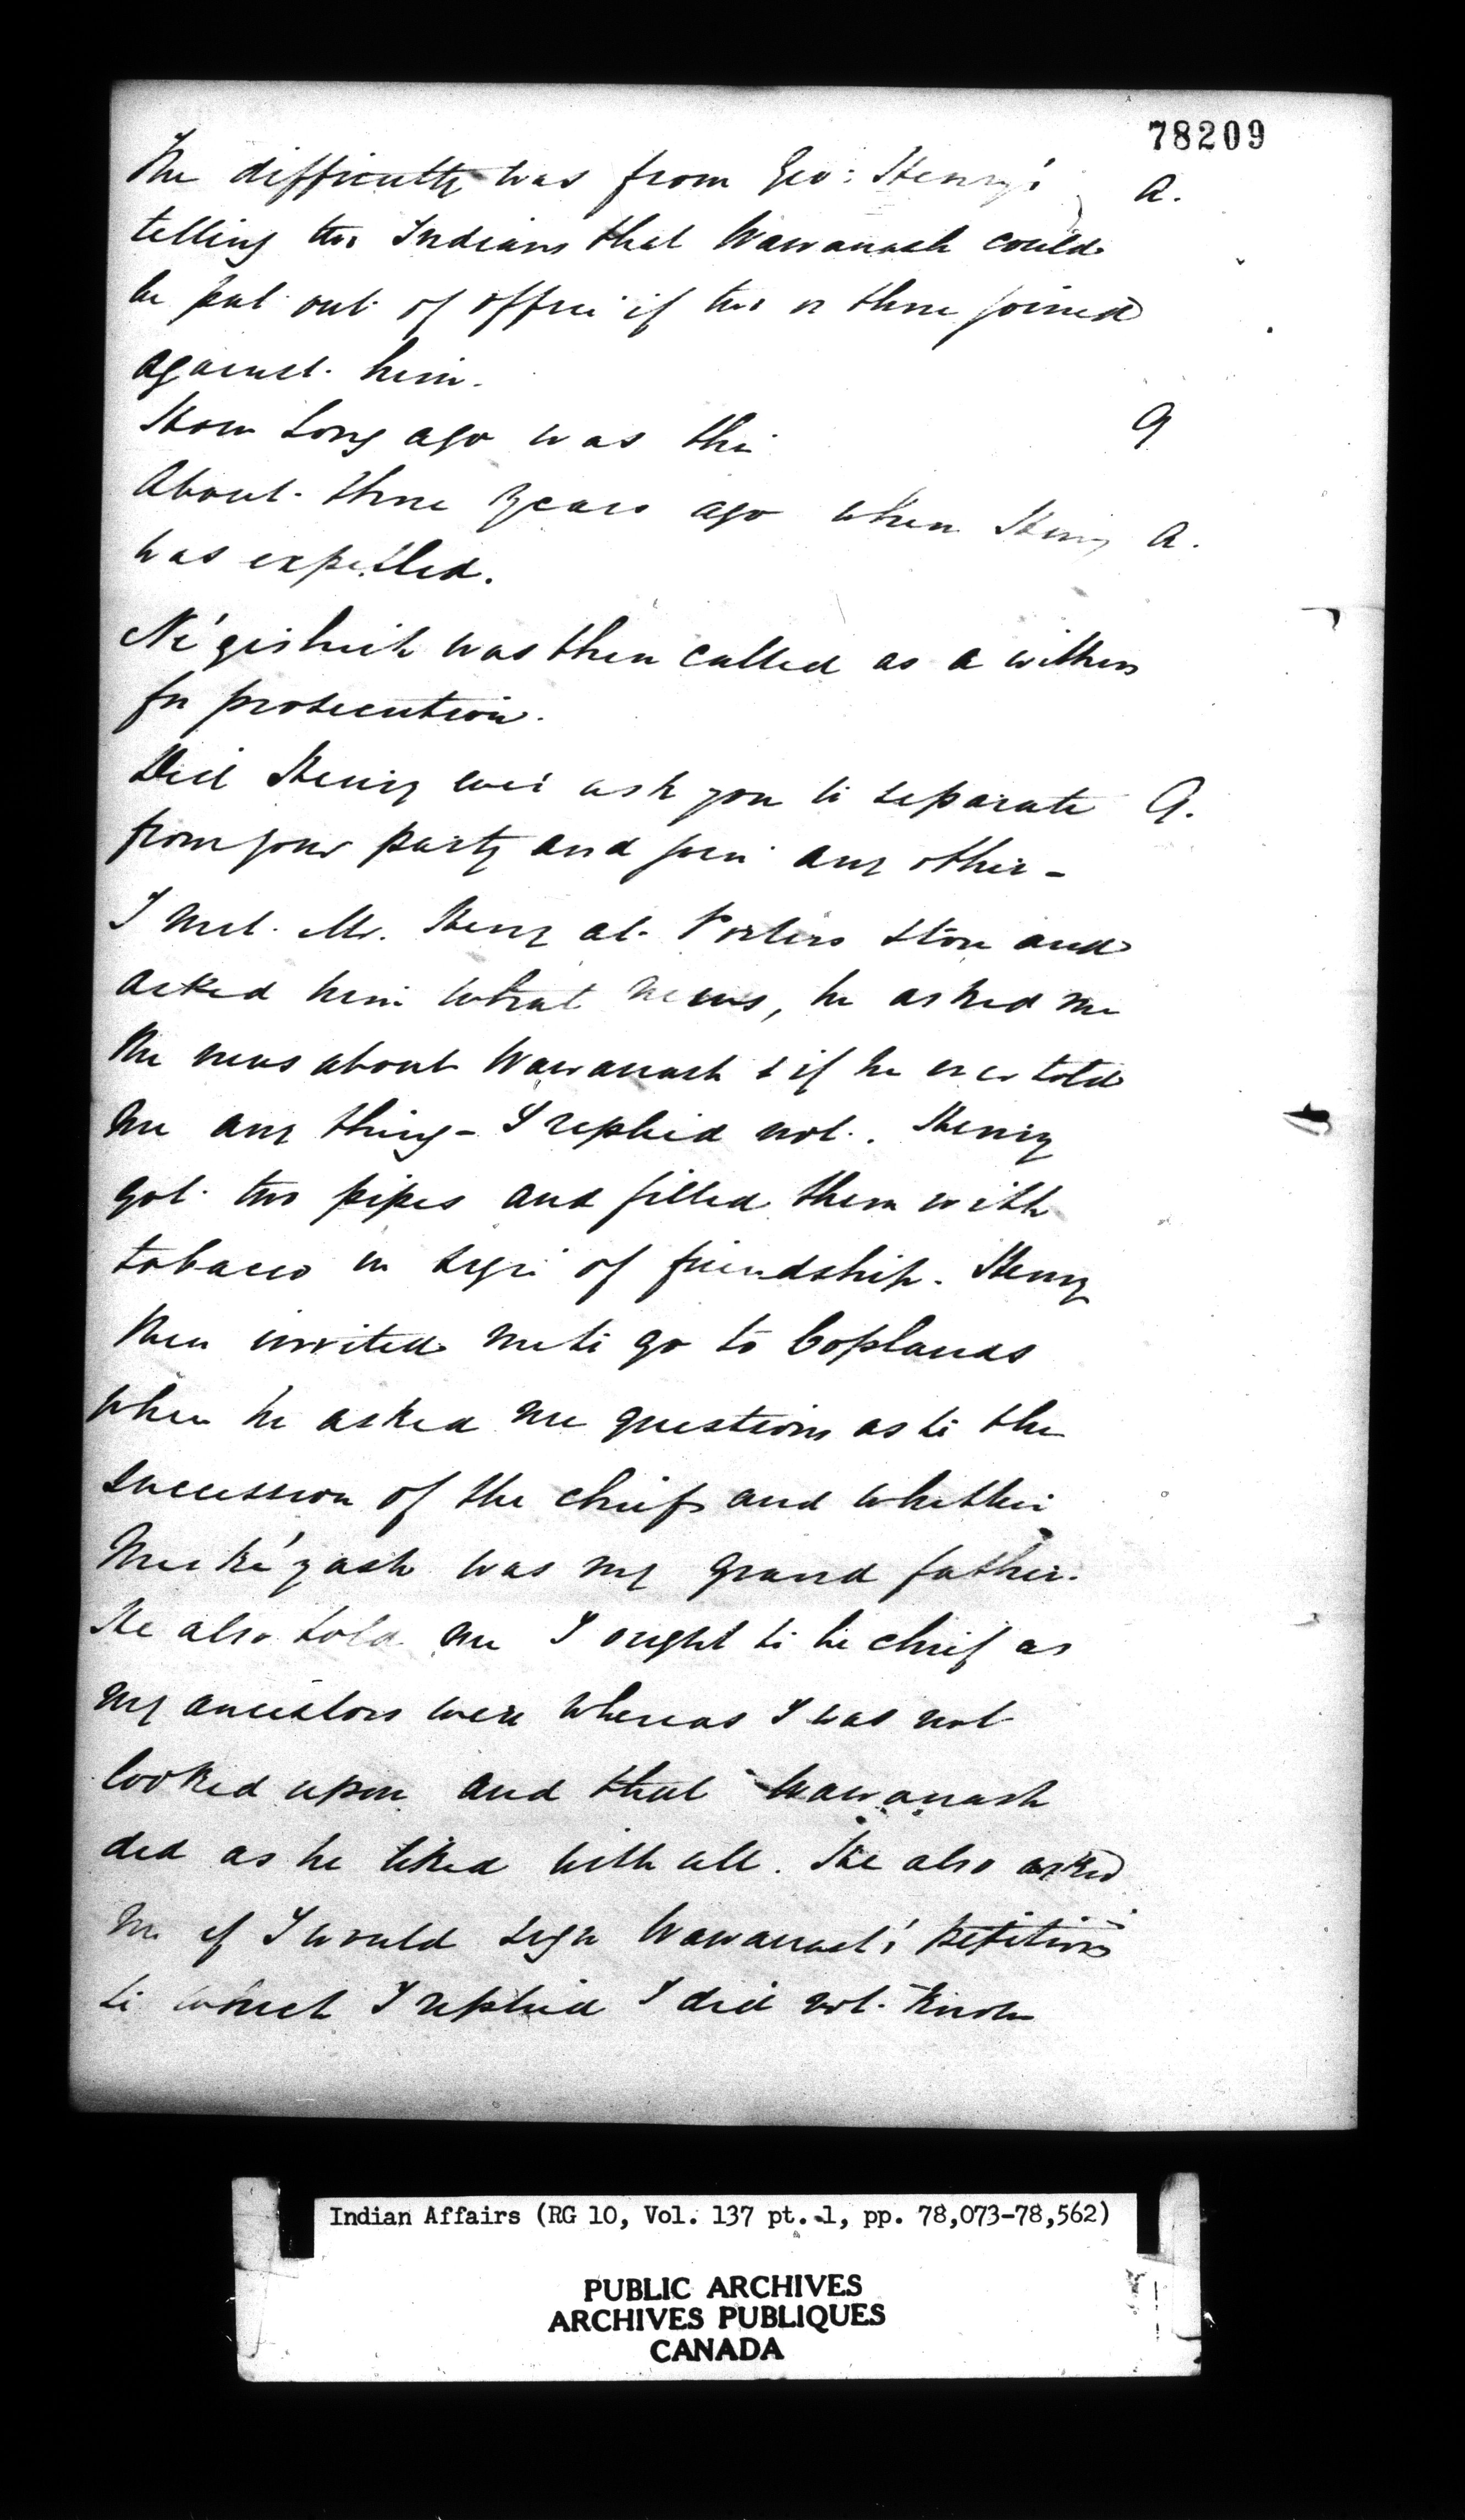 78209
The difficulty was from Geo: Henry's A.
telling the Indians that Wawanash could
be put out of office if two or three joined
against him.
How long ago was this Q
About three years ago when Henry A.
was expelled.
Né'gishick was then called as a witness
for prosecution.
Did Henry ever ask you to separate Q.
from your party and join any other -
I met Mr. Henry at Porters store and
asked him what news, he asked me
the news about Wawanash & if he ever told
me any thing - I replied not. Henry
got two pipes and filled them with
tobacco in sign of friendship. Henry
then invited me to go to Coplands
when he asked me questions as to the
succession of the chiefs and whether
was my grand father.
He also told me I ought to be chief as
my ancestors were whereas I was not
looked upon and that Wawanash
did as he liked with all. He also asked
me if I would sign Wawanash's petition
to which I replied I did not know
Indian Affairs (RG 10, Vol. 137 pt. 1, pp. 78,073-78,562)
PUBLIC ARCHIVES
ARCHIVES PUBLIQUES
CANADA